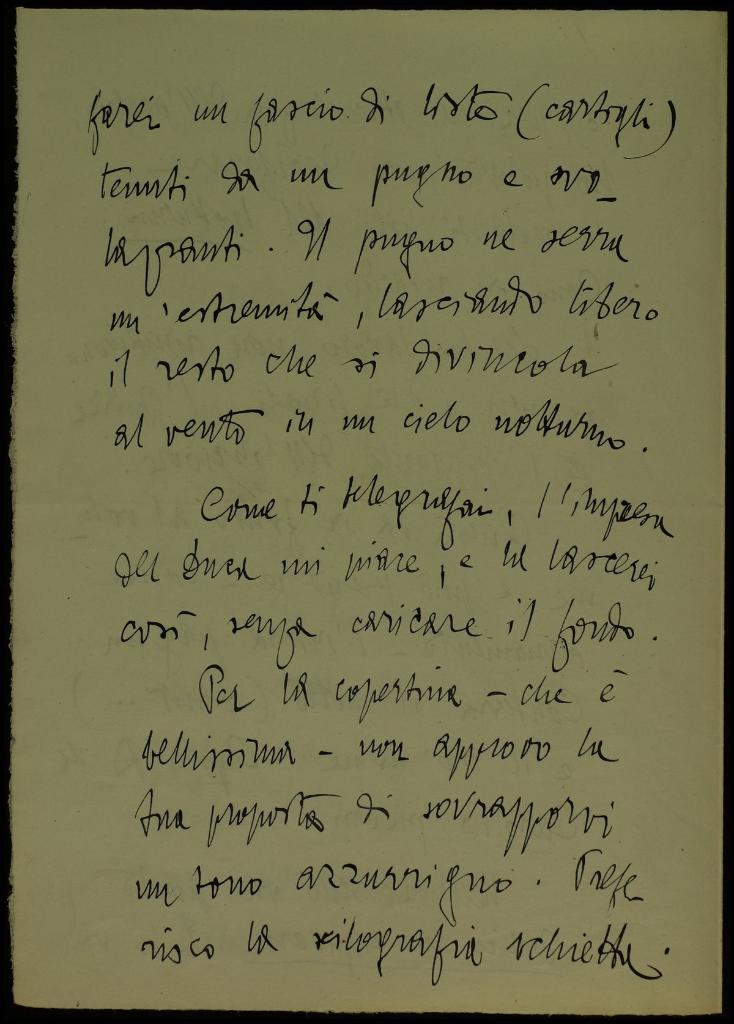 farei un fascio di liste (cartigli)
tenuti da un pugno e svo_
lazzanti. Il pugno ne serra
un'estremità, lasciando libero
il resto che si divincola
al vento in un cielo notturno.
Come ti telegrafai, l'impresa
del Duca mi piace, e la lascerei
così, senza caricare il fondo.
Per la copertina – che è
bellissima – non approvo la
tua proposta di sovrapporvi
un tono azzurrigno. Prefe
risco la xilografia schietta.